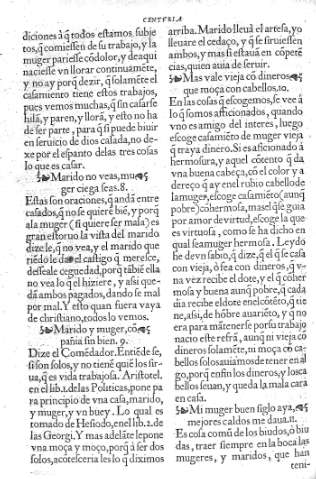 CENTVRIA
diciones à q̃ todos estamos subje
tos, q̃ comiessen de su trabajo, y la
muger pariesse cõ dolor, y de aqui
naciesse vn llorar continuamẽte,
y no ay porq̃ dezir, q̃ solamẽte el
casamiento tiene estos trabajos,
pues vemos muchas, q̃ sin casarse
hilã, y paren, y llorã, y esto no ha
de ser parte, para q̃ si puede biuir
en seruicio de dios casada, no de-
xe por el espanto de las tres cosas
lo que es casar.
Marido no veas, mu
ger ciega seas. 8.
Estas son oraciones, q̃ andã entre
casados, q̃ no se quierẽ biẽ, y porq̃
a la muger (si quiere ser mala) es
gran estoruo la vista del marido
dize le, q̃ no vea, y el marido que
riẽdo le dar el castigo q̃ meresce,
dessea le ceguedad, porq̃ tãbiẽ ella
no vea lo q̃ el hiziere, y assi que-
dã ambos pagados, dando se mal
por mal. Y esto quan fuera vaya
de christiano, todos lo vemos.
Marido y muger, cõ
pañia sin bien. 9.
Dize el Comẽdador. Entiẽde se,
si son solos, y no tienẽ quiẽ los sir-
ua, q̃ es vida trabajosa. Aristotel.
en el lib. 1. de las Politicas, pone pa
ra principio de vna casa, marido,
y muger, y vn buey. Lo qual es
tomado de Hesiodo, en el lib. 2. de
las Georgi. Y mas adelãte le pone
vna moça y moço, porq̃ à ser dos
solos, acõtesceria les lo q̃ diximos
arriba. Marido lleuà el artesa, yo
lleuare el cedaço, y q̃ se siruiessen
ambos, y mas si estauã en cõpetẽ
cias, quien auia de seruir.
Mas vale vieja cõ dineros
que moça con cabellos. 10.
En las cosas q̃ escogemos, se vee à
lo q̃ somos afficionados, quando
vno es amigo del interes, luego
escoge casamiẽto de muger vieja
q̃ traya dinero. Si es aficionado à
hermosura, y aquel cõtento q̃ da
vna buena cabeça, cõ el color y a
dereço q̃ ay en el rubio cabello de
la muger, escoge casamiẽto (aunq̃
pobre) cõ hermosa, mas el q̃ se guia
por amor de virtud, escoge la que
es virtuosa, como se ha dicho en
qual sea muger hermosa. Leydo
he de vn sabio, q̃ dize, q̃ el q̃ se casa
con vieja, ò fea con dineros, q̃ v-
na vez recibe el dote, y el q̃ cõ her
mosa y buena aunq̃ pobre, q̃ cada
dia recibe el dote en el cõtẽto, q̃ tie
ne, assi, de hõbre auariẽto, y q̃ no
era para mãtenerse por su trabajo
nacio este refrã, aunq̃ ni vieja cõ
dineros solamẽte, ni moça cõ ca-
bellos solos auiamos de tener en al
go, porq̃ en fin los dineros, y los ca
bellos se uan, y queda la mala carã
en casa.
Mi muger buen siglo aya,
mejores caldos me daua. 11.
Es cosa comũ de los biudos, ò biu
das, traer siempre en la boca las
mugeres, y maridos, que han
teni-